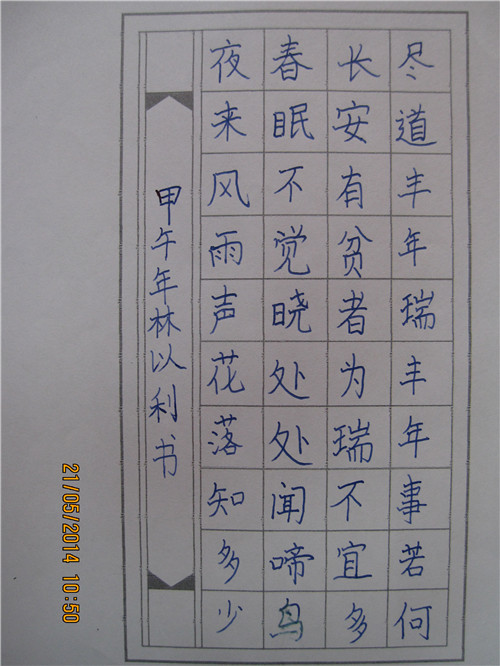 尽道丰年瑞丰年事若何
长安有贫者为瑞不宜多
春眠不觉晓处处闻啼鸟
夜来风雨声花落知多少
甲午年林以利书
21/05/2014 10:50